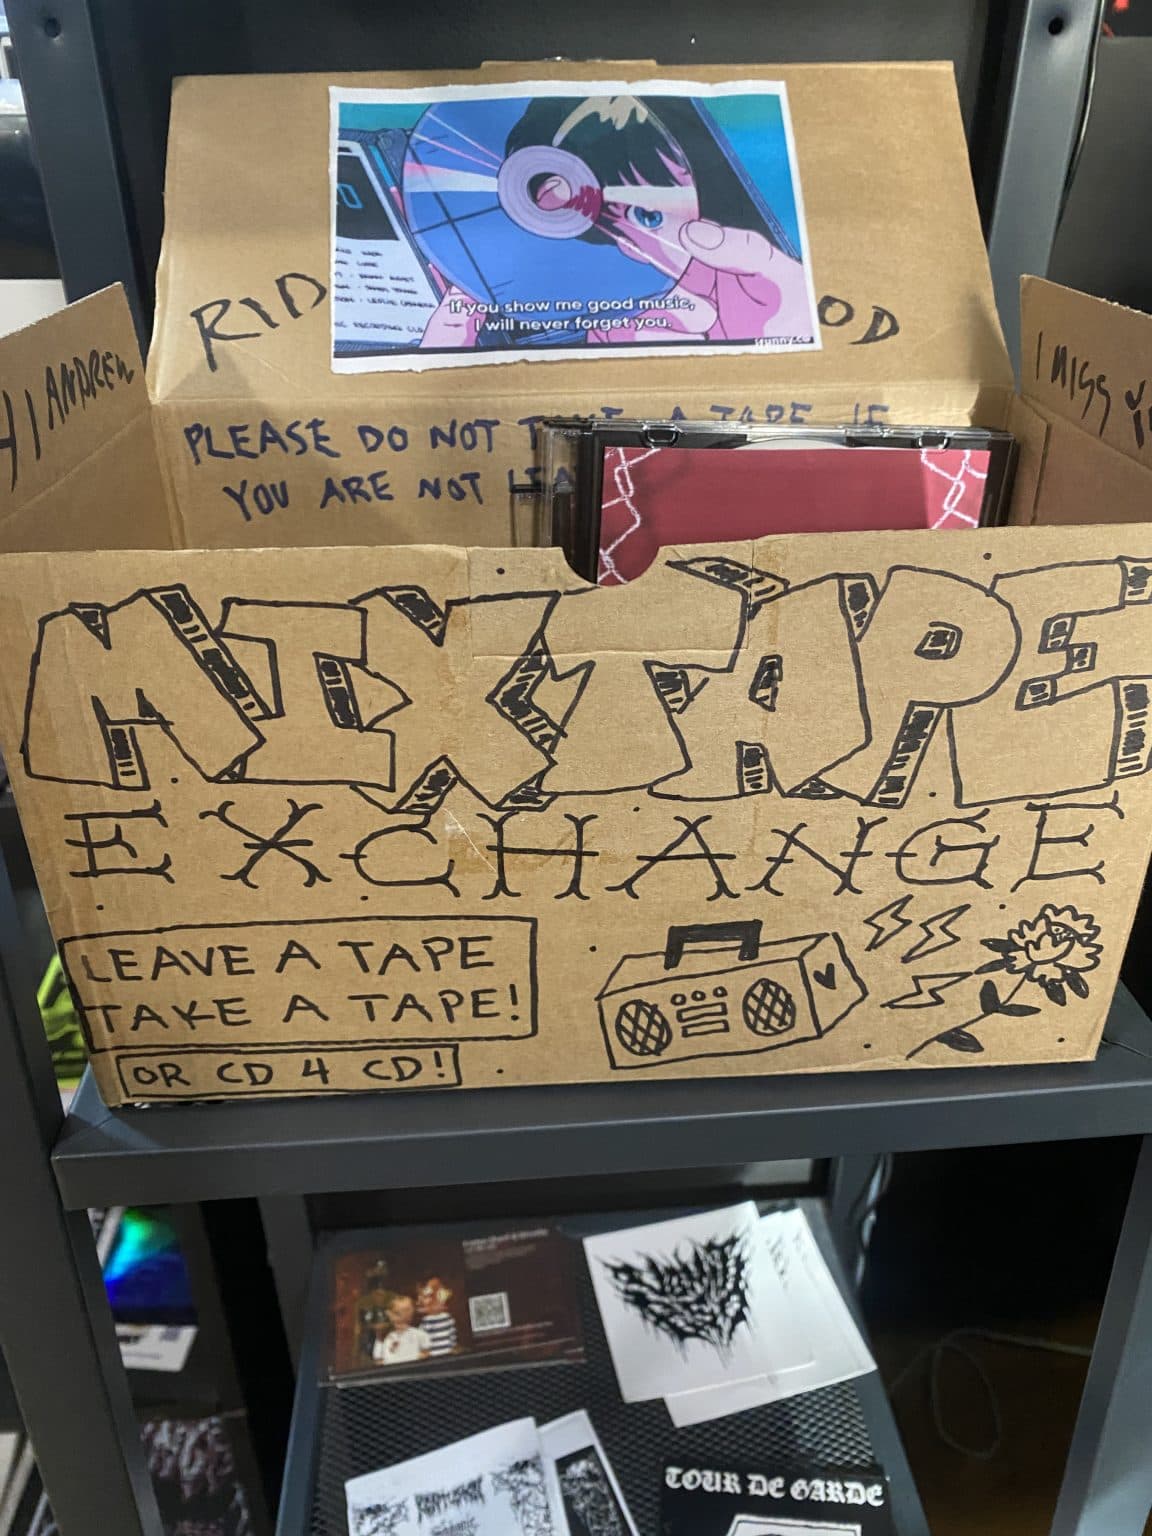 If you show me good music,
I will never forget you.
HI ANDREW
I MISS
PLEASE DO NOT TAKE A TAPE IF
YOU ARE NOT
MIXTAPE
EXCHANGE
LEAVE A TAPE
TAKE A TAPE!
OR CD 4 CD!
TOUR DE GARDE